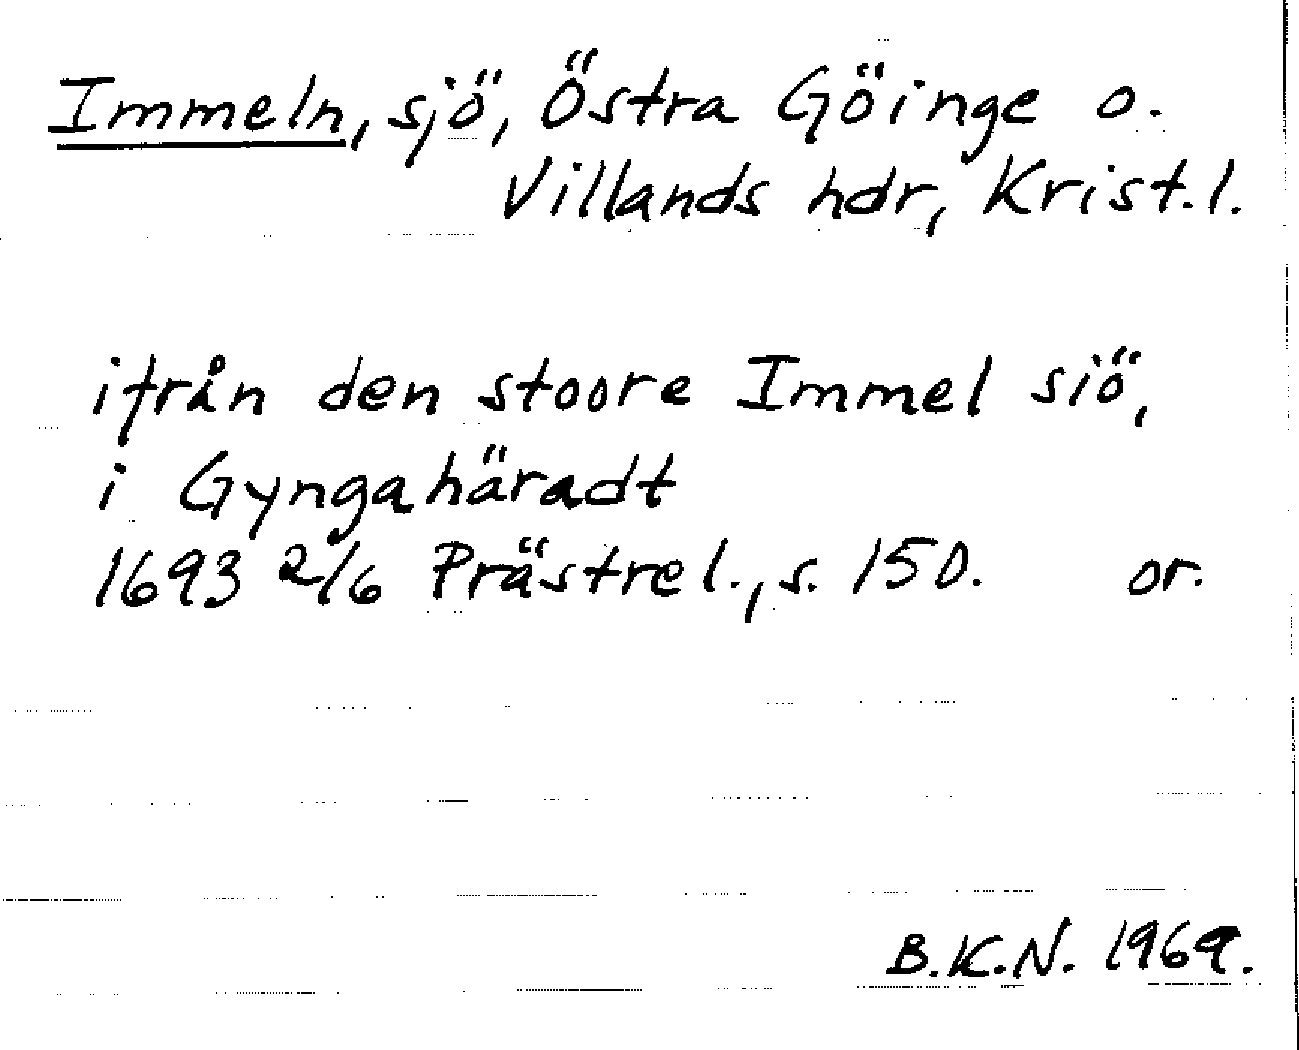 Immeln, sjö, Östra Göinge o.
Villands hdr, Krist.l.
ifrån den stoore Immel siö,
i Gyngahäradt
1693 2/6 Prästrel., s. 150. or.
B.K.N. 1969.